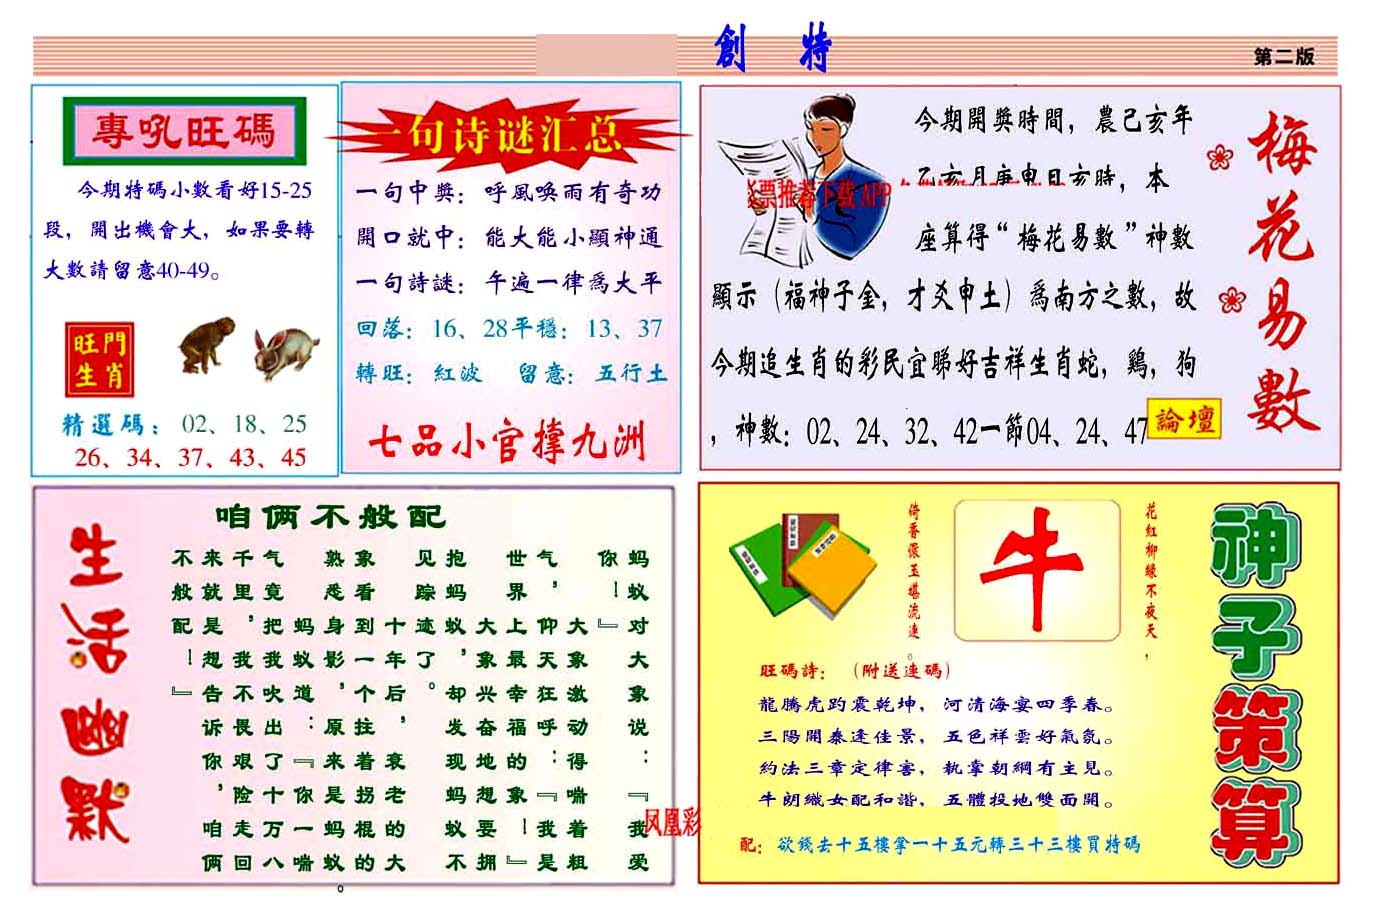 創 特
第二版
專吼旺碼
今期特碼小數看好15-25
段，開出機會大，如果要轉
大數請留意40-49。
旺門
生肖
精選碼：02、18、25
26、34、37、43、45
一句诗谜汇总
一句中獎：呼風喚雨有奇功
開口就中：能大能小顯神通
一句詩謎：午遍一律爲大平
回落：16、28平穩：13、37
轉旺：紅波 留意：五行土
七品小官撑九洲
梅花易數
今期開獎時間，農己亥年
乙亥月庚申日亥時，本
票推荐下载 APP
座算得“梅花易數”神數
顯示（福神子金，才爻申土）爲南方之數，故
今期追生肖的彩民宜睇好吉祥生肖蛇，鷄，狗
，神數：02、24、32、42一節04、24、47
論壇
生活幽默
咱俩不般配
蚂蚁对大象说：『我爱
你！』
大象激动得喘着粗
气，仰天狂呼：『我是
世界上最幸福的象！』
大象兴奋地想要拥
抱蚂蚁，却发现蚂蚁不
见踪迹了。
十年后，衰老的大
象看到一个拄着拐棍的
熟悉身影，原来是蚂蚁。
蚂蚁道：『你一喘
气竟把我吹出了十万八
千里，我不畏艰险走回
来就是想告诉你，咱俩
不般配！』
凤凰彩
神子策算
花紅柳緑不夜天，
牛
倚香偎玉堪流連。
旺碼詩：（附送連碼）
龍騰虎趵震乾坤，河清海宴四季春。
三陽開泰逢佳景，五色祥雲好氣氛。
約法三章定律害，執掌朝綱有主見。
牛朗織女配和諧，五體投地雙面開。
配：欲錢去十五樓拿一十五元轉三十三樓買特碼